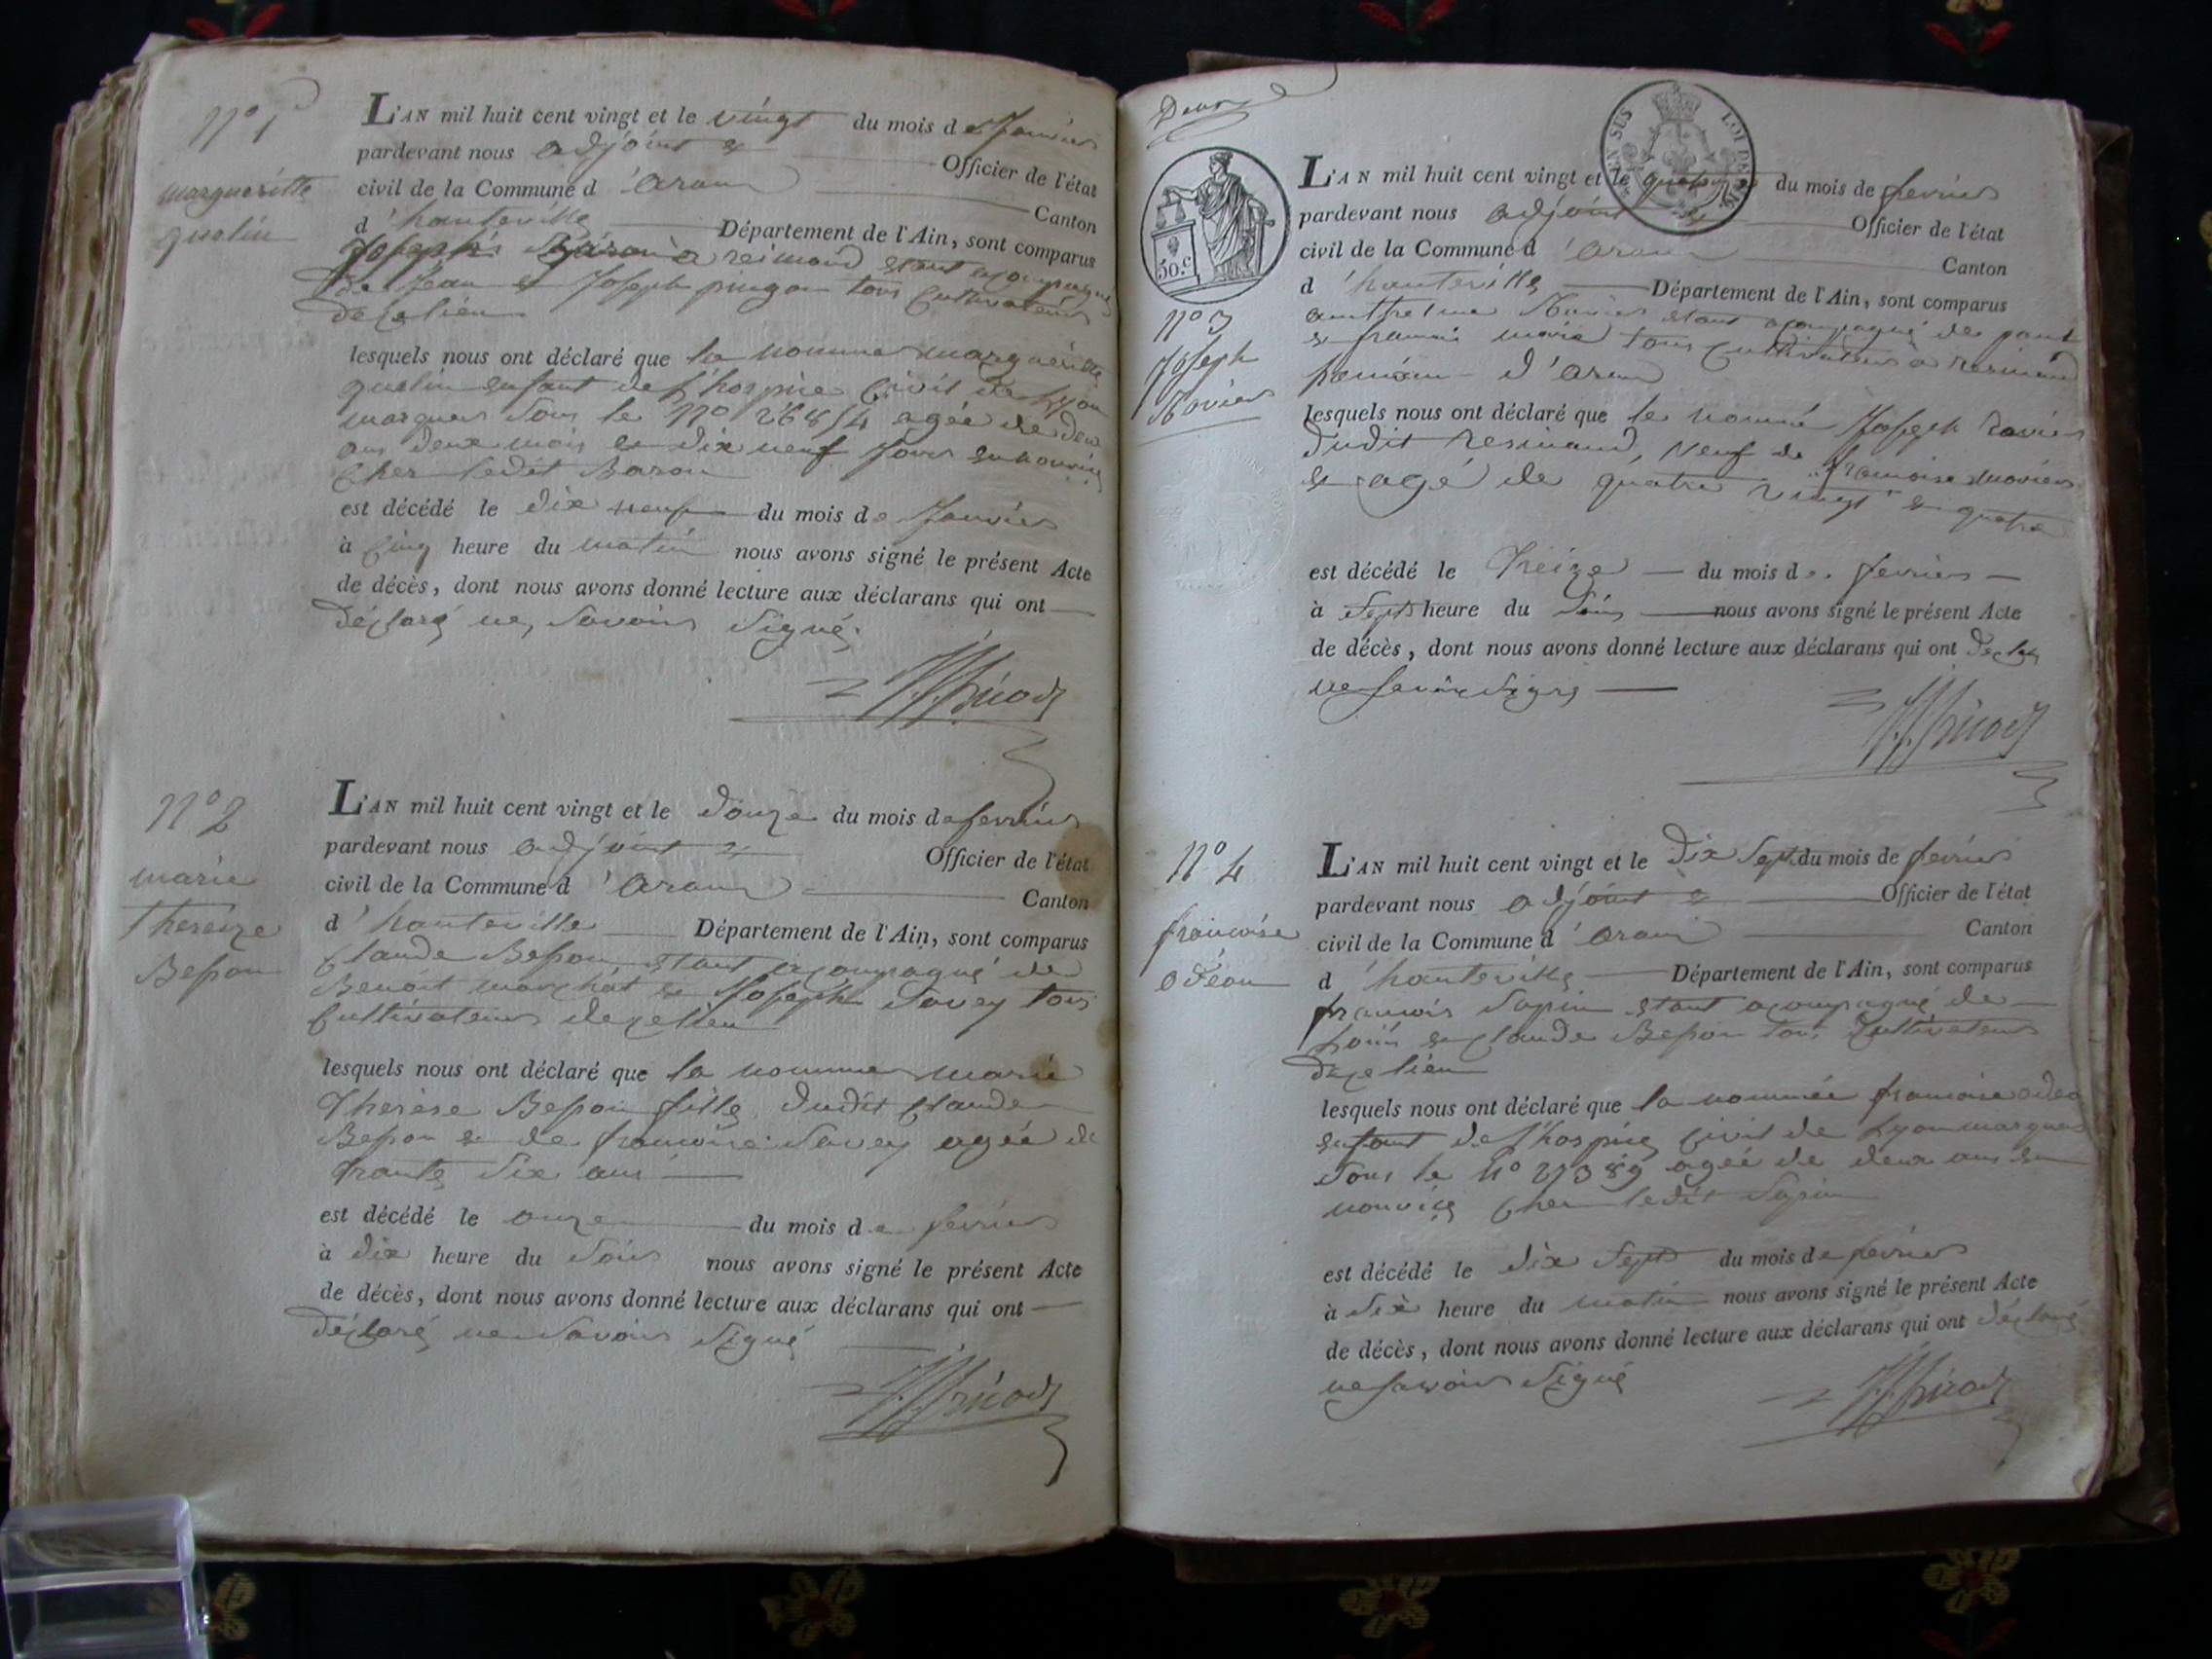 N° 1
margueritte
quelin
L'AN mil huit cent vingt et le vingt du mois de Janvier
pardevant nous adjoint Officier de l'état
civil de la Commune d'aran Canton
d'hauteville Département de l'Ain, sont comparus
Joseph à resinand etant acompagné
de Jean et Joseph pingon tous cultivateurs
de ce lieu
lesquels nous ont déclaré que la nommee margueritte
quelin enfant de l'hospice Civil de Lyon
marquer sous le N° agée de deux
ans deux mois et dix neuf Jours en nourrice
cher ledit Baron
est décédé le dix neuf du mois de Janvier
à cinq heure du matin nous avons signé le présent Acte
de décès, dont nous avons donné lecture aux déclarans qui ont
déclaré ne savoir signé.
N° 2
marie
thereize
Besson
L'AN mil huit cent vingt et le Douze du mois de fevrier
pardevant nous adjoint Officier de l'état
civil de la Commune d'aran Canton
d'hauteville Département de l'Ain, sont comparus
Claude Besson etant acompagné de
Benoit marchat et Joseph Savey tous
cultivateurs de ce lieu
lesquels nous ont déclaré que la nommee marie
Therèse Besson fille dudit Claude
Besson et de francoise Savey agée de
trante six ans
est décédé le onze du mois de fevrier
à dix heure du soir nous avons signé le présent Acte
de décès, dont nous avons donné lecture aux déclarans qui ont
déclaré ne savoir signé
Deux
50.c
N° 3
Joseph
Ravier
L'AN mil huit cent vingt et le du mois de fevrier
pardevant nous adjoint Officier de l'état
civil de la Commune d'aran Canton
d'hauteville Département de l'Ain, sont comparus
anthelme Ravier etant acompagné de
et tous cultivateurs a resinand
d'aran
lesquels nous ont déclaré que le nommé Joseph Ravier
dudit resinand, veuf de francoise
et agé de quatre vingt et quatre
est décédé le Treize du mois de fevrier
à sept heure du soir nous avons signé le présent Acte
de décès, dont nous avons donné lecture aux déclarans qui ont déclaré
ne savoir signé
N° 4
francoise
odéau
L'AN mil huit cent vingt et le dix sept du mois de fevrier
pardevant nous adjoint Officier de l'état
civil de la Commune d'aran Canton
d'hauteville Département de l'Ain, sont comparus
francois Sapin etant acompagné de
loüis et Claude Besson tous cultivateurs
de ce lieu
lesquels nous ont déclaré que la nommée francoise
enfant de l'hospice Civil de Lyon marquer
sous le N° 27389 agée de deux ans en
nourice cher ledit Sapin
est décédé le dix sept du mois de fevrier
à six heure du matin nous avons signé le présent Acte
de décès, dont nous avons donné lecture aux déclarans qui ont déclaré
ne savoir signé